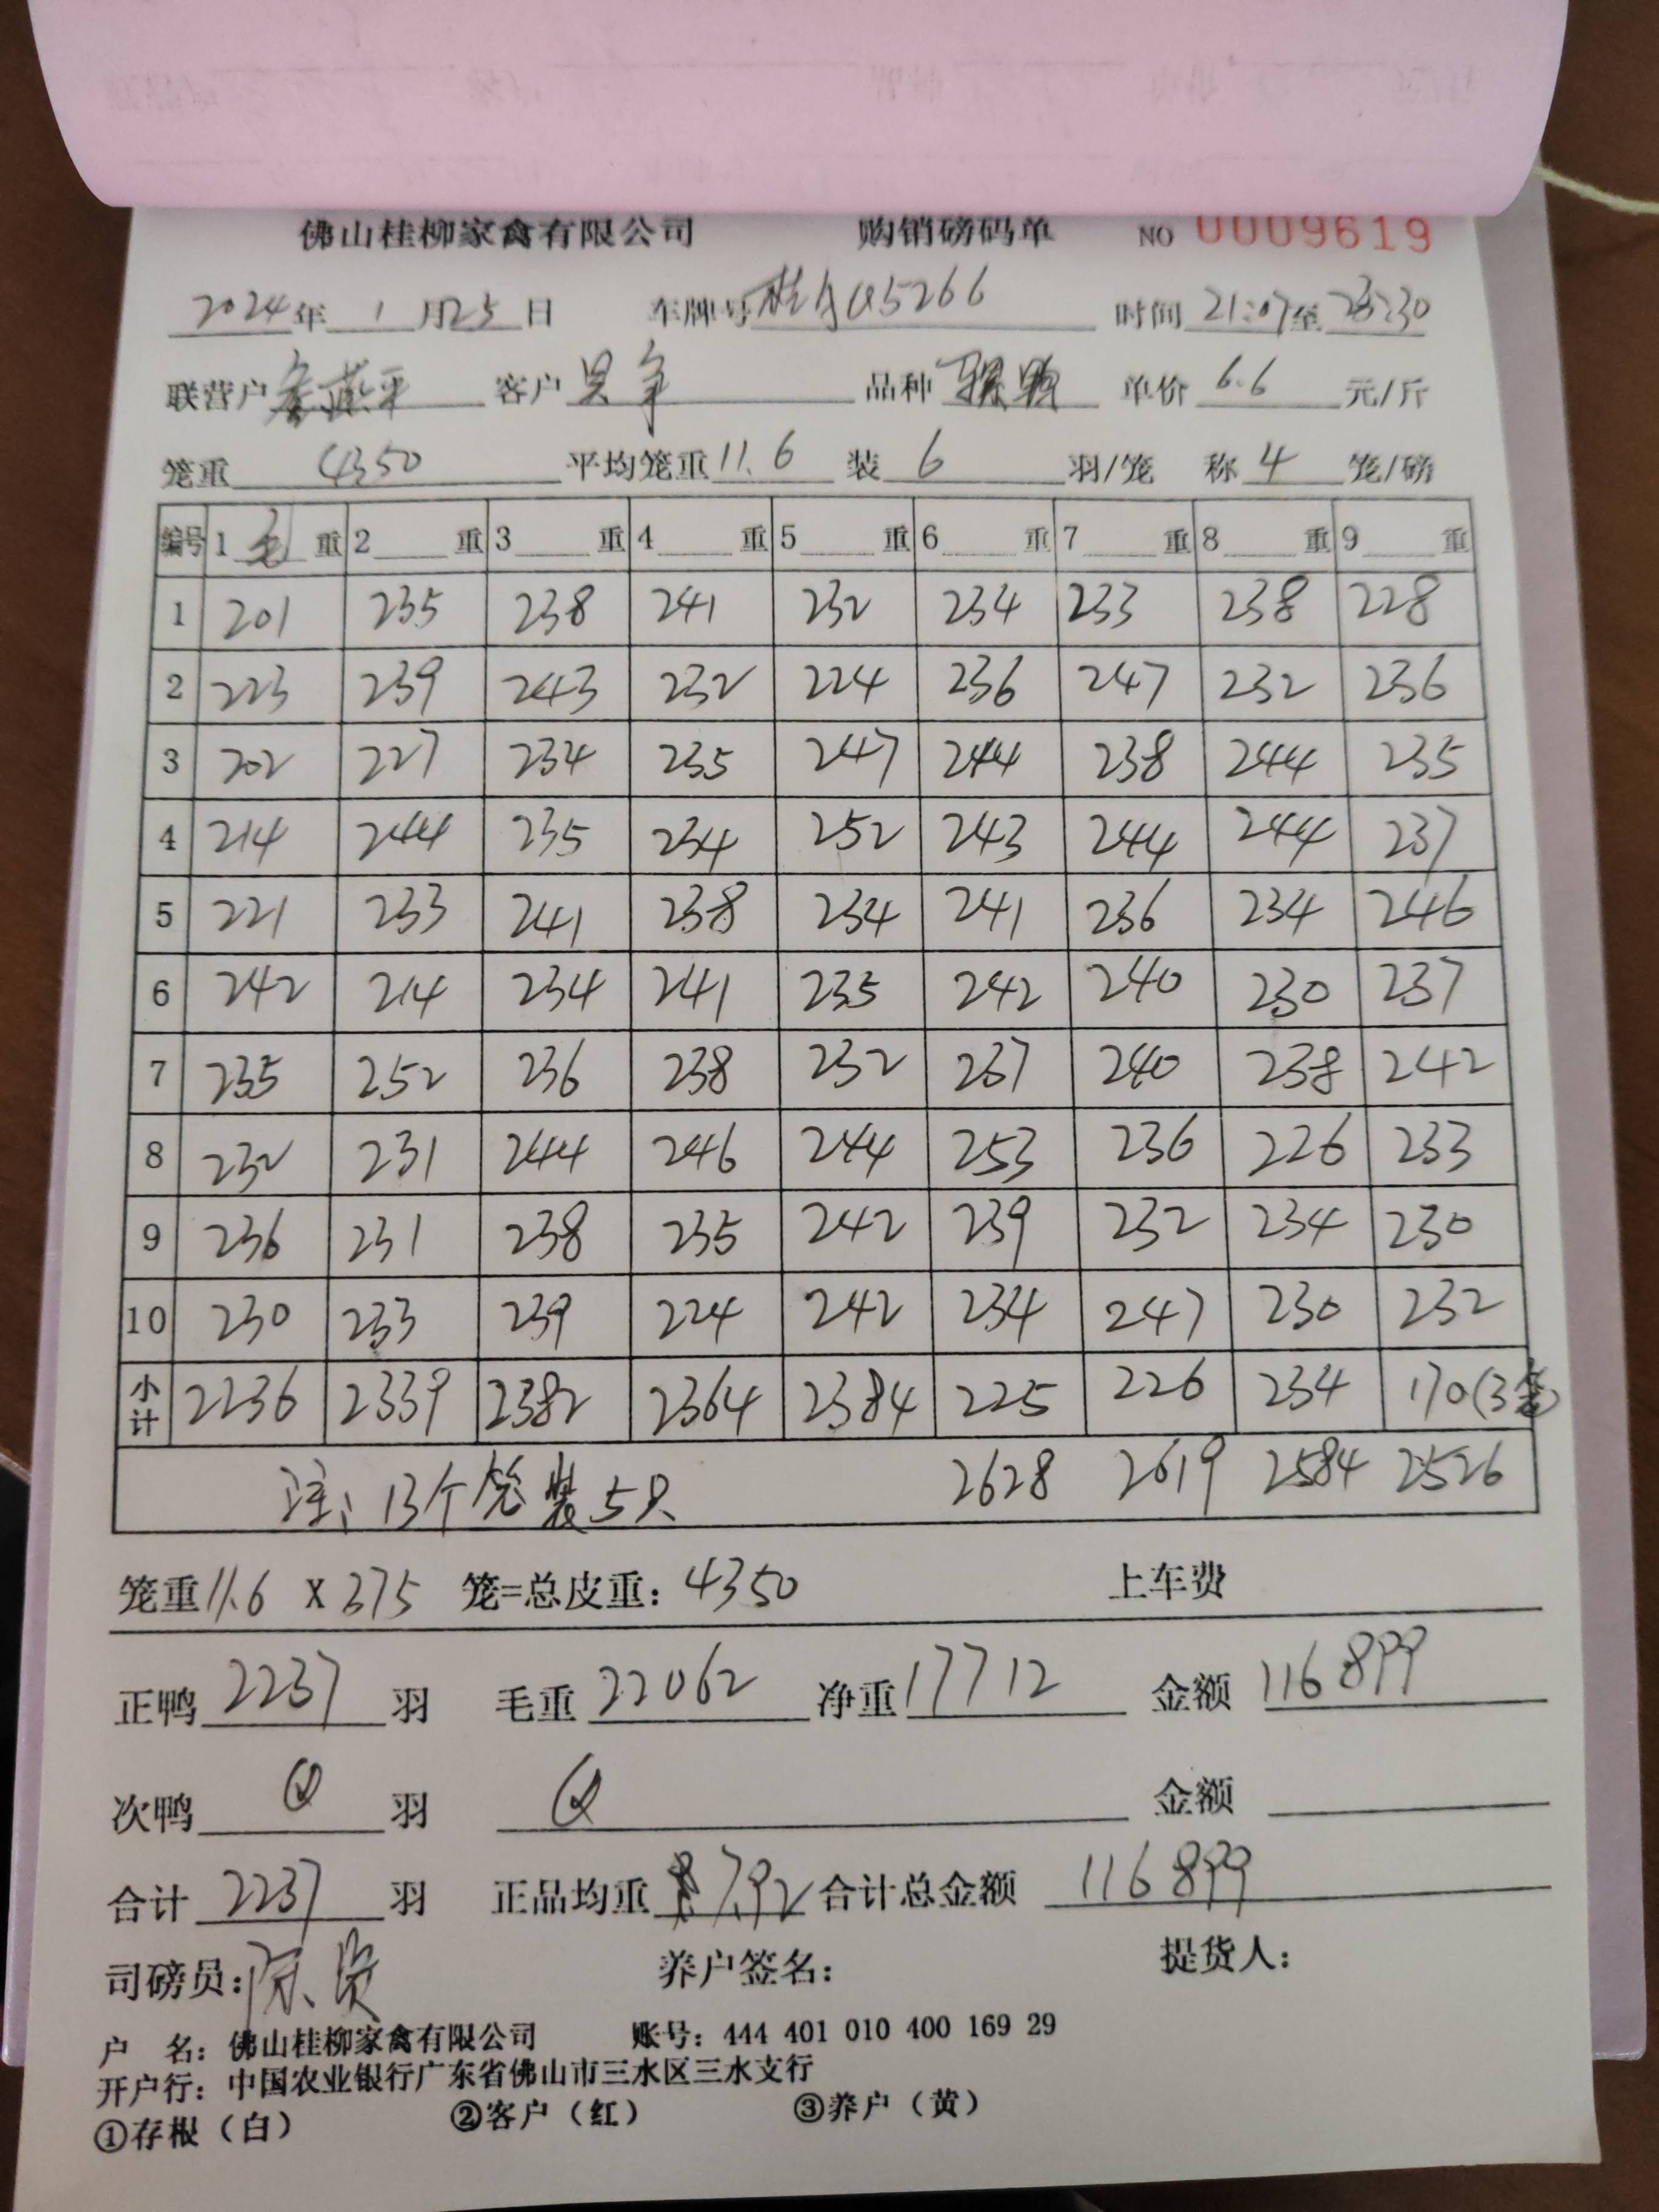 佛山桂柳家禽有限公司 购销磅码单 NO 0009619
2024年 1 月25日 车牌号 桂 Q45266 时间 21:07至23:30
联营户 燕平 客户 吴 品种 单价 6.6 元/斤
笼重 4350 平均笼重 11.6 装 6 羽/笼 称 4 笼/磅
编号 1 毛 重 2 重 3 重 4 重 5 重 6 重 7 重 8 重 9 重
1 201 235 238 241 232 234 233 238 228
2 223 239 243 232 224 236 247 232 236
3 202 227 234 235 247 244 238 244 235
4 214 244 235 234 252 243 244 244 237
5 221 233 241 238 234 241 236 234 246
6 242 214 234 241 235 242 240 230 237
7 235 252 236 238 232 237 240 238 242
8 232 231 244 246 244 253 236 226 233
9 236 231 238 235 242 239 232 234 230
10 230 233 239 224 242 234 247 230 232
小计 2236 2339 2382 2364 2384 225 226 234 170(3笼)
注: 13个笼装5只 2628 2619 2584 2526
笼重 11.6 X 375 笼=总皮重: 4350 上车费
正鸭 2237 羽 毛重 22062 净重 17712 金额 116899
次鸭 0 羽 0 金额
合计 2237 羽 正品均重 7.92 合计总金额 116899
司磅员: 陈 养户签名: 提货人:
户 名: 佛山桂柳家禽有限公司 账号: 444 401 010 400 169 29
开户行: 中国农业银行广东省佛山市三水区三水支行
①存根（白） ②客户（红） ③养户（黄）